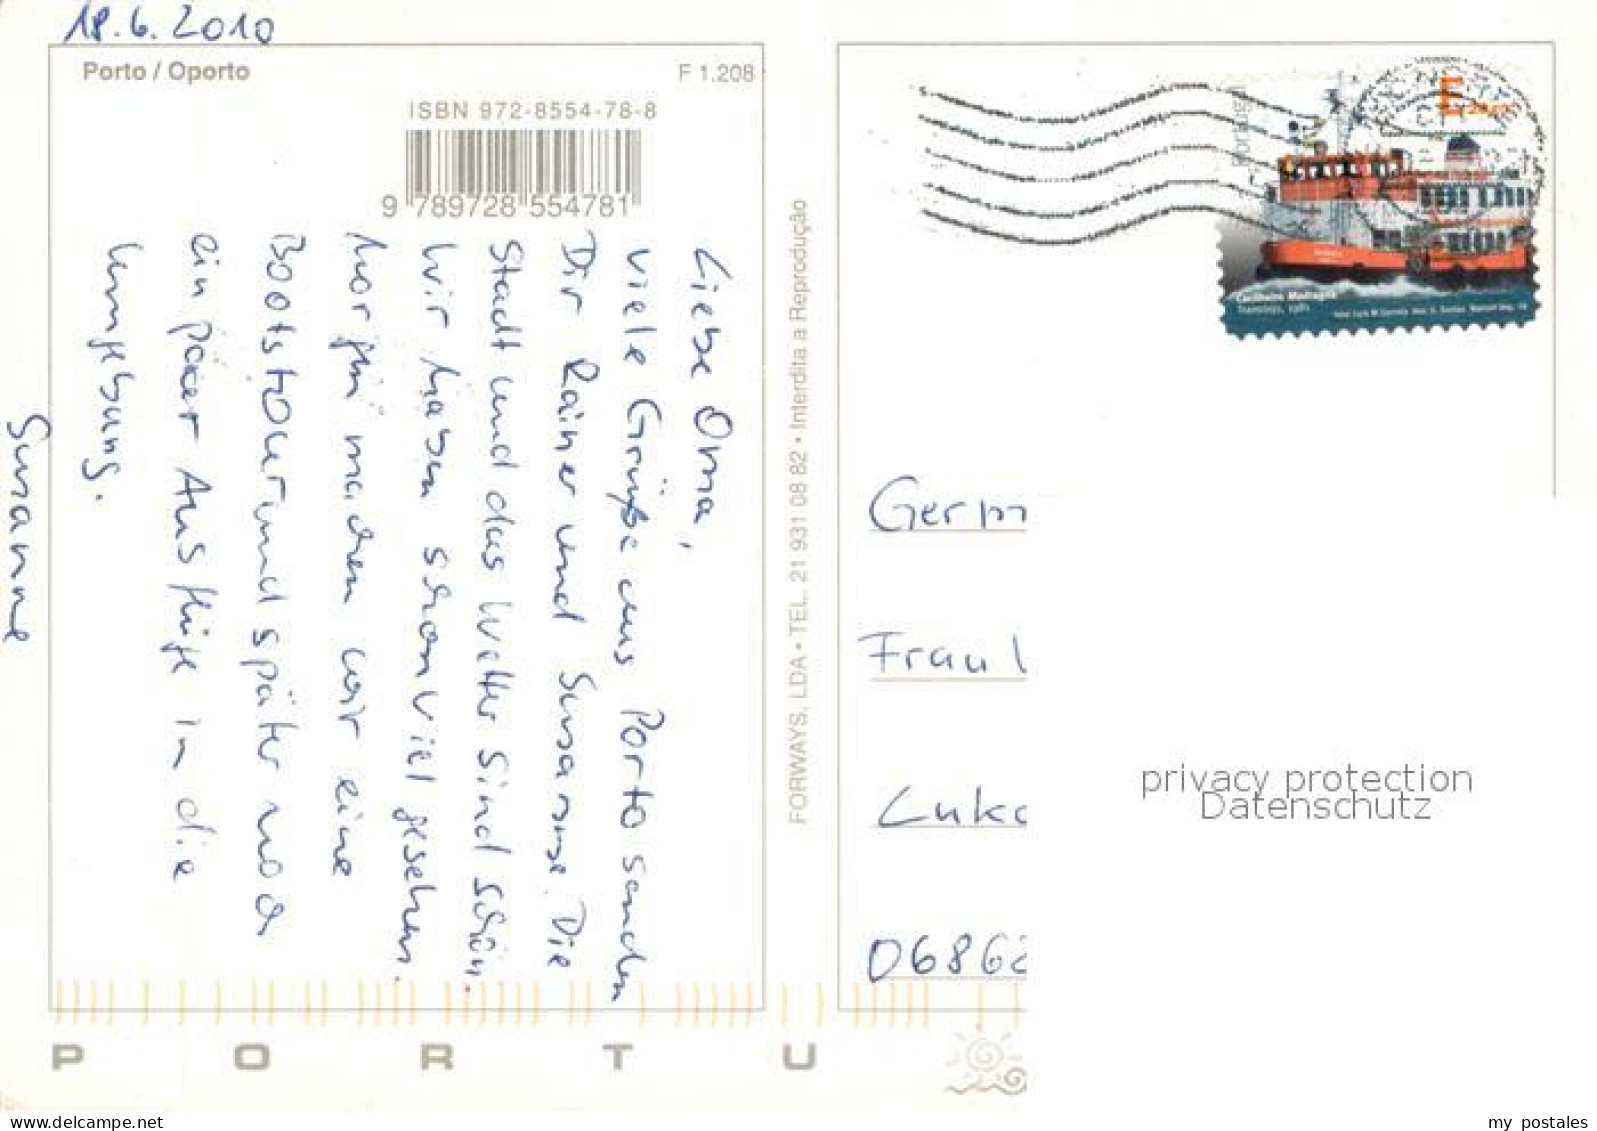 18.6.2010
Porto / Oporto
F 1.208
ISBN 972-8554-78-8
9 789728 554781
Liebe Oma,
viele Grüße aus Porto senden
Dir Rainer und Susanne. Die
Stadt und das Wetter sind schön.
Wir haben schon viel gesehen.
Morgen machen wir eine
Bootstour und später noch
ein paar Ausflüge in die
Umgebung.
Susanne
FORWAYS, LDA • TEL. 21 931 08 82 • Interdita a Reprodução
Portugal
E
Cacilheiro Madragoa
Transtejo, 1981
Germ
Frau
Luka
0686
privacy protection
Datenschutz
P O R T U
my postales
delcampe.net